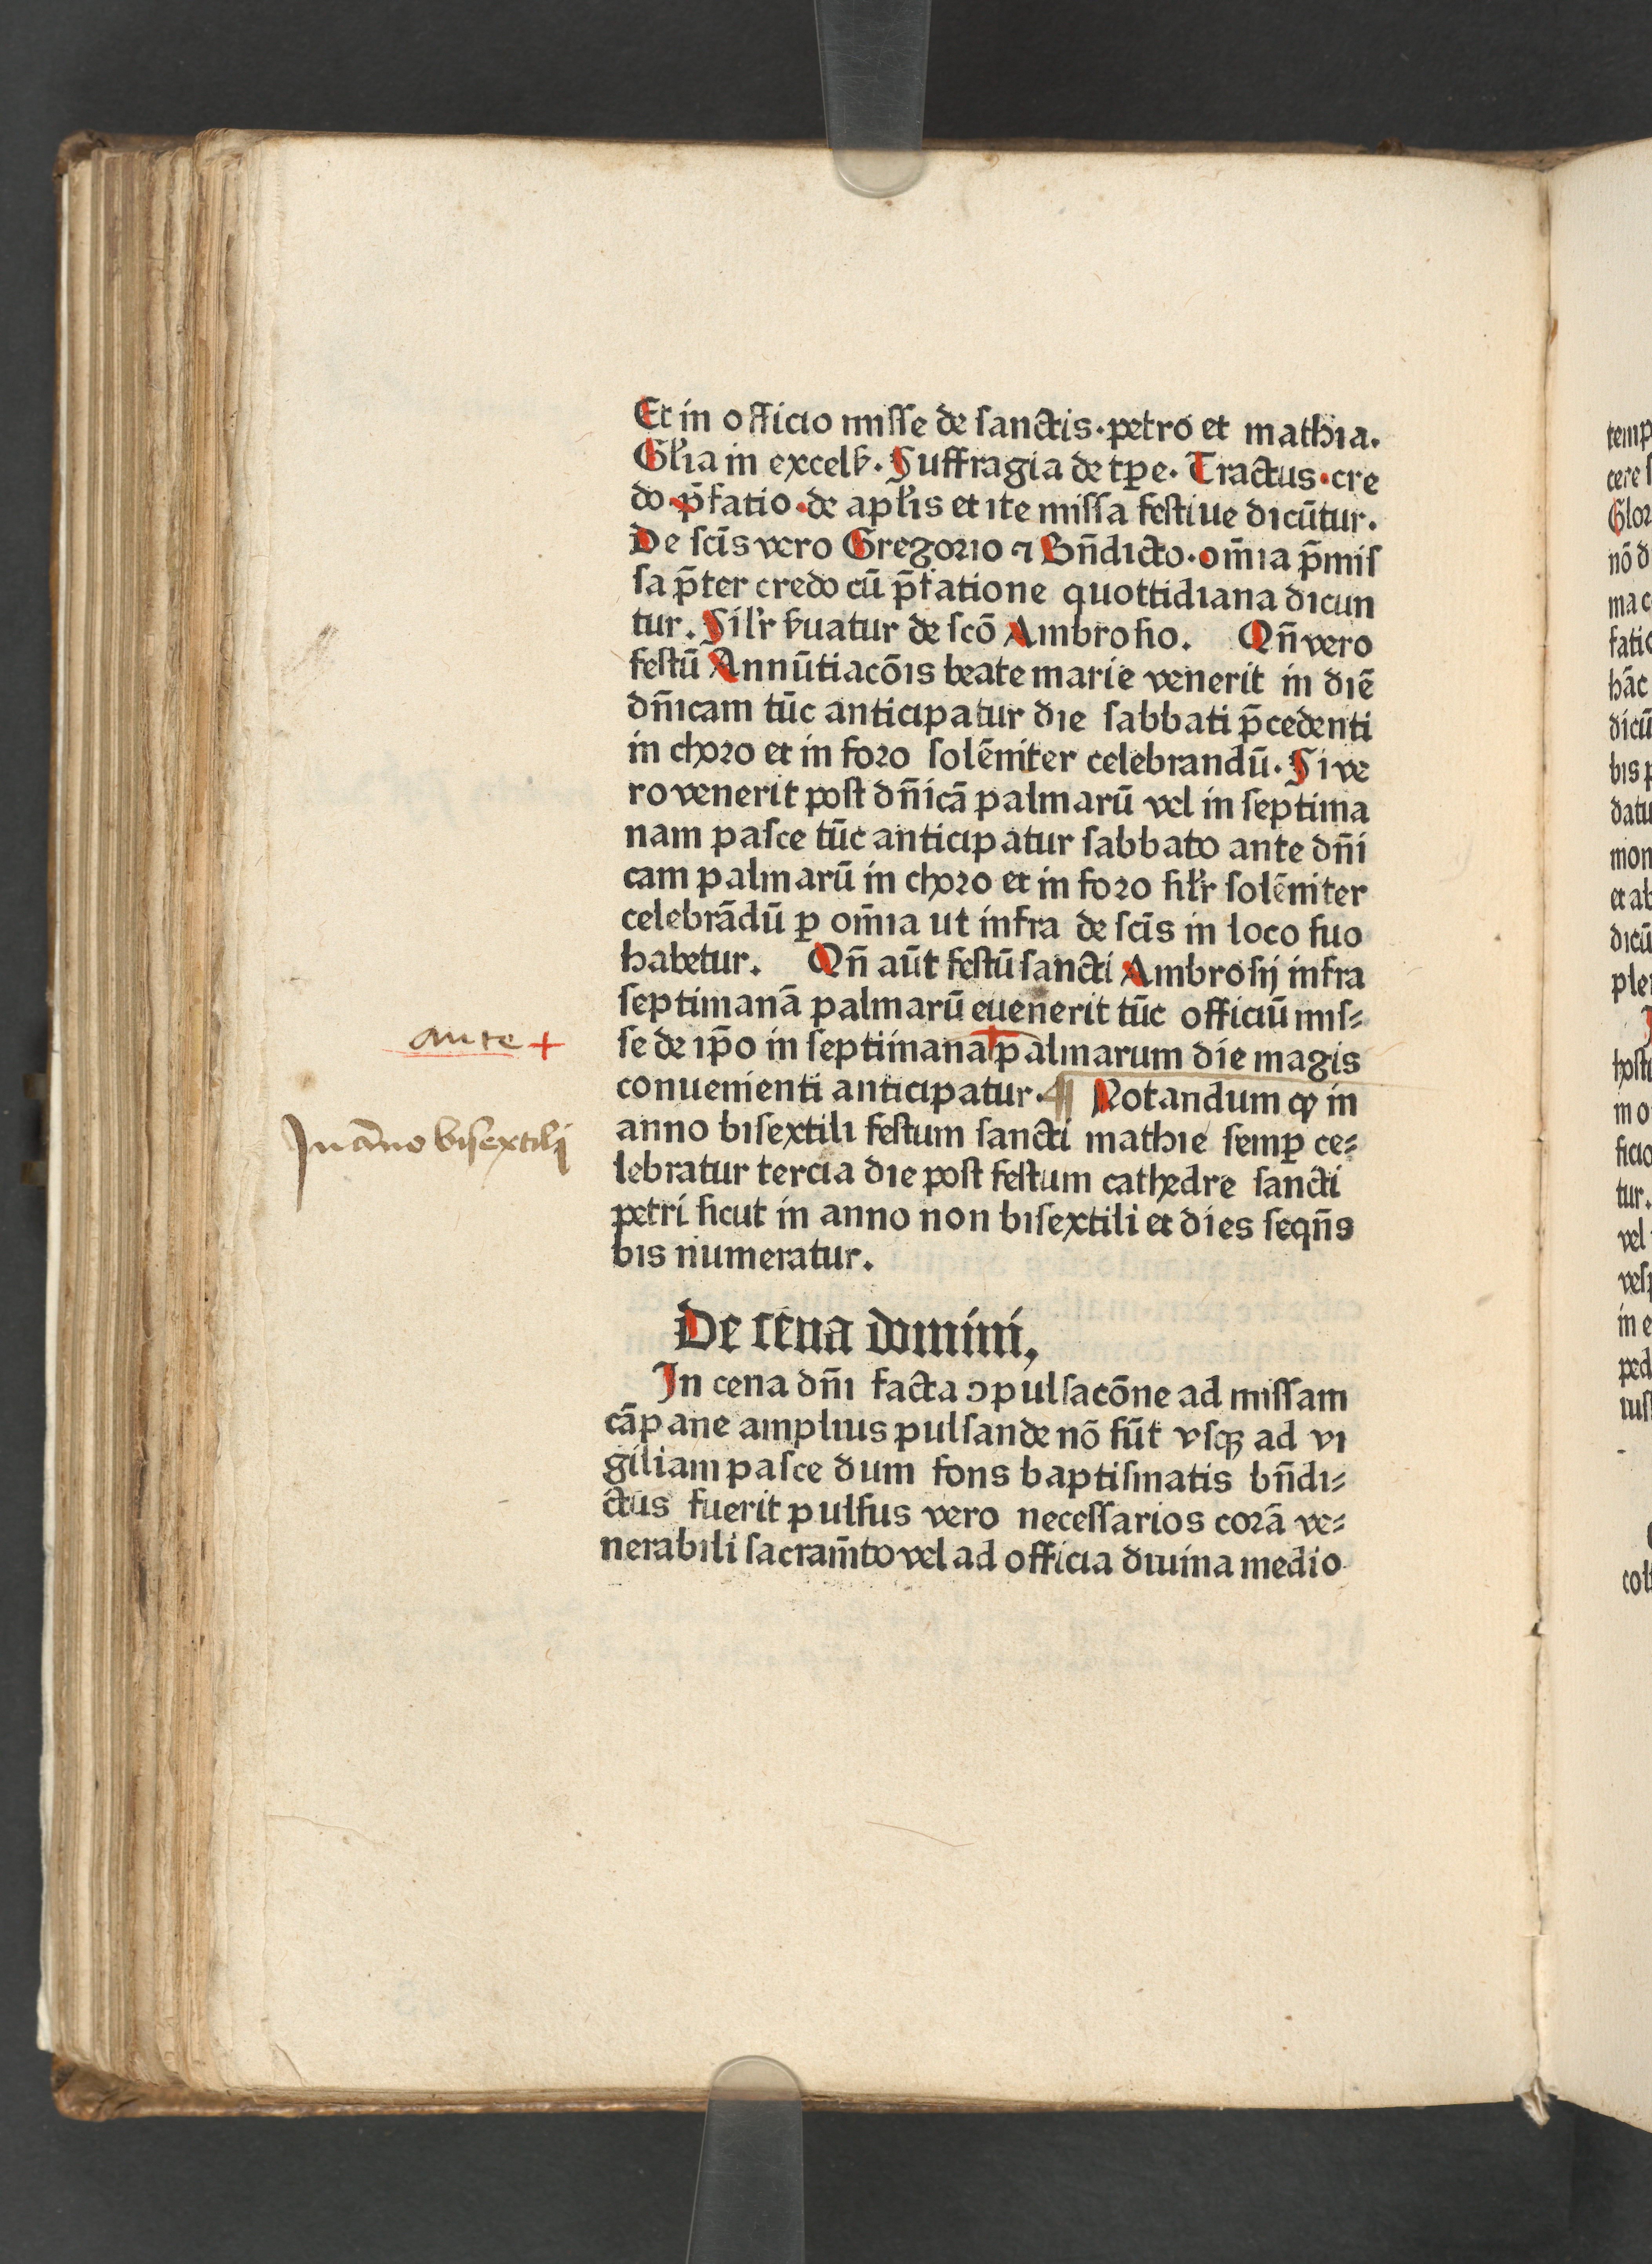 Et in officio misse de sanctis·petro et mathia.
Gl'ia in excels̕. Suffragia de tp̄e. Tractus·cre
do·p̄fatio·de apl'is et ite missa festiue dicūtur.
De sc̄is vero Gregorio ⁊ Bn̄dicto·om̄ia p̄mis
sa p̄ter credo cū p̄fatione quottidiana dicun
tur. Sil'r s̕uatur de scō Ambrosio. Qn̄ vero
festū Annūtiacōis beate marie venerit in diē
dn̄icam tūc anticipatur die sabbati p̄cedenti
in choro et in foro solēniter celebrandū. Si ve
ro venerit post dn̄icā palmarū vel in septima
nam pasce tūc anticipatur sabbato ante dn̄i
cam palmarū in choro et in foro sil'r solēniter
celebrādū ꝑ om̄ia ut infra de sc̄is in loco suo
habetur. Qn̄ aūt festū sancti Ambrosij infra
septimanā palmarū euenerit tūc officiū mis⸗
se de ip̄o in septimana palmarum die magis
ante +
conuenienti anticipatur. ¶ Notandum ꝙ in
anno bisextili festum sancti mathie semꝑ ce⸗
In āno bisextilj
lebratur tercia die post festum cathedre sancti
petri sicut in anno non bisextili et dies seqn̄s
bis numeratur.
De cena domini,
In cena dn̄i facta ↄpulsacōne ad missam
cāpane amplius pulsande nō sūt vsqꝫ ad vi
giliam pasce dum fons baptismatis bn̄di⸗
ctus fuerit pulsus vero necessarios corā ve⸗
nerabili sacram̄to vel ad officia diuina medio